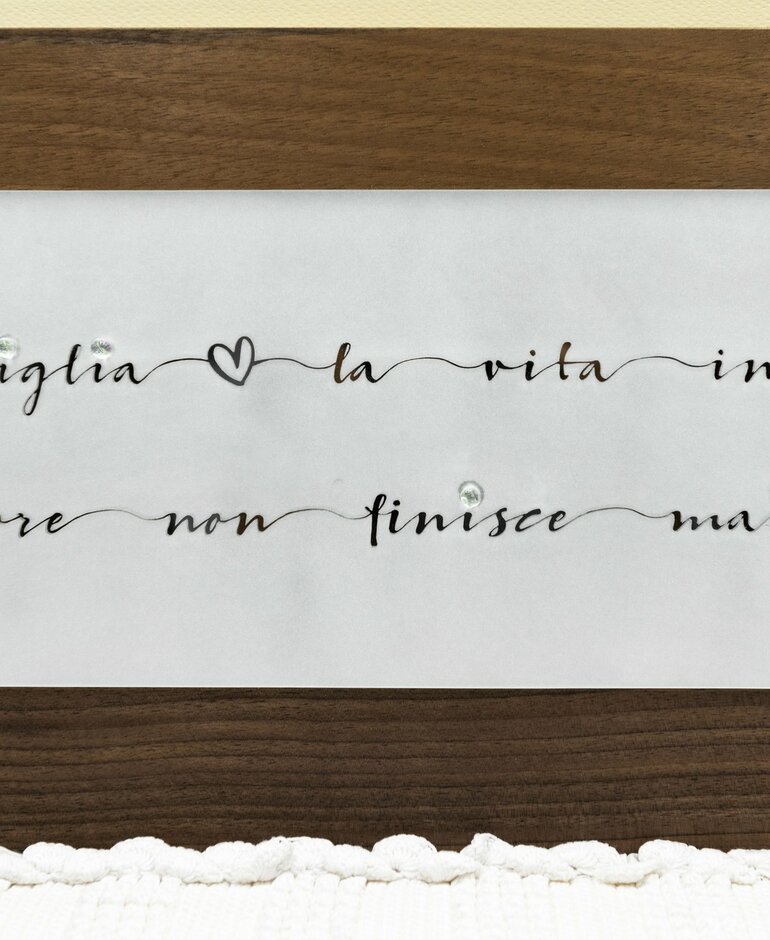 iglia la vita in
re non finisce ma